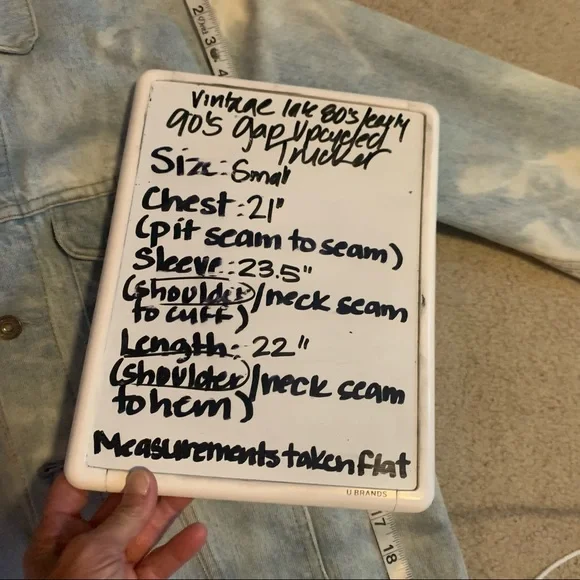 2
3
4
Vintage late 80's/early
90's gap Upcycled
Trucker
Size: Small
Chest: 21"
(pit seam to seam)
Sleeve: 23.5"
(shoulder/neck seam
to cuff)
Length: 22"
(shoulder/neck seam
to hem)
Measurements taken flat
U BRANDS
17
18